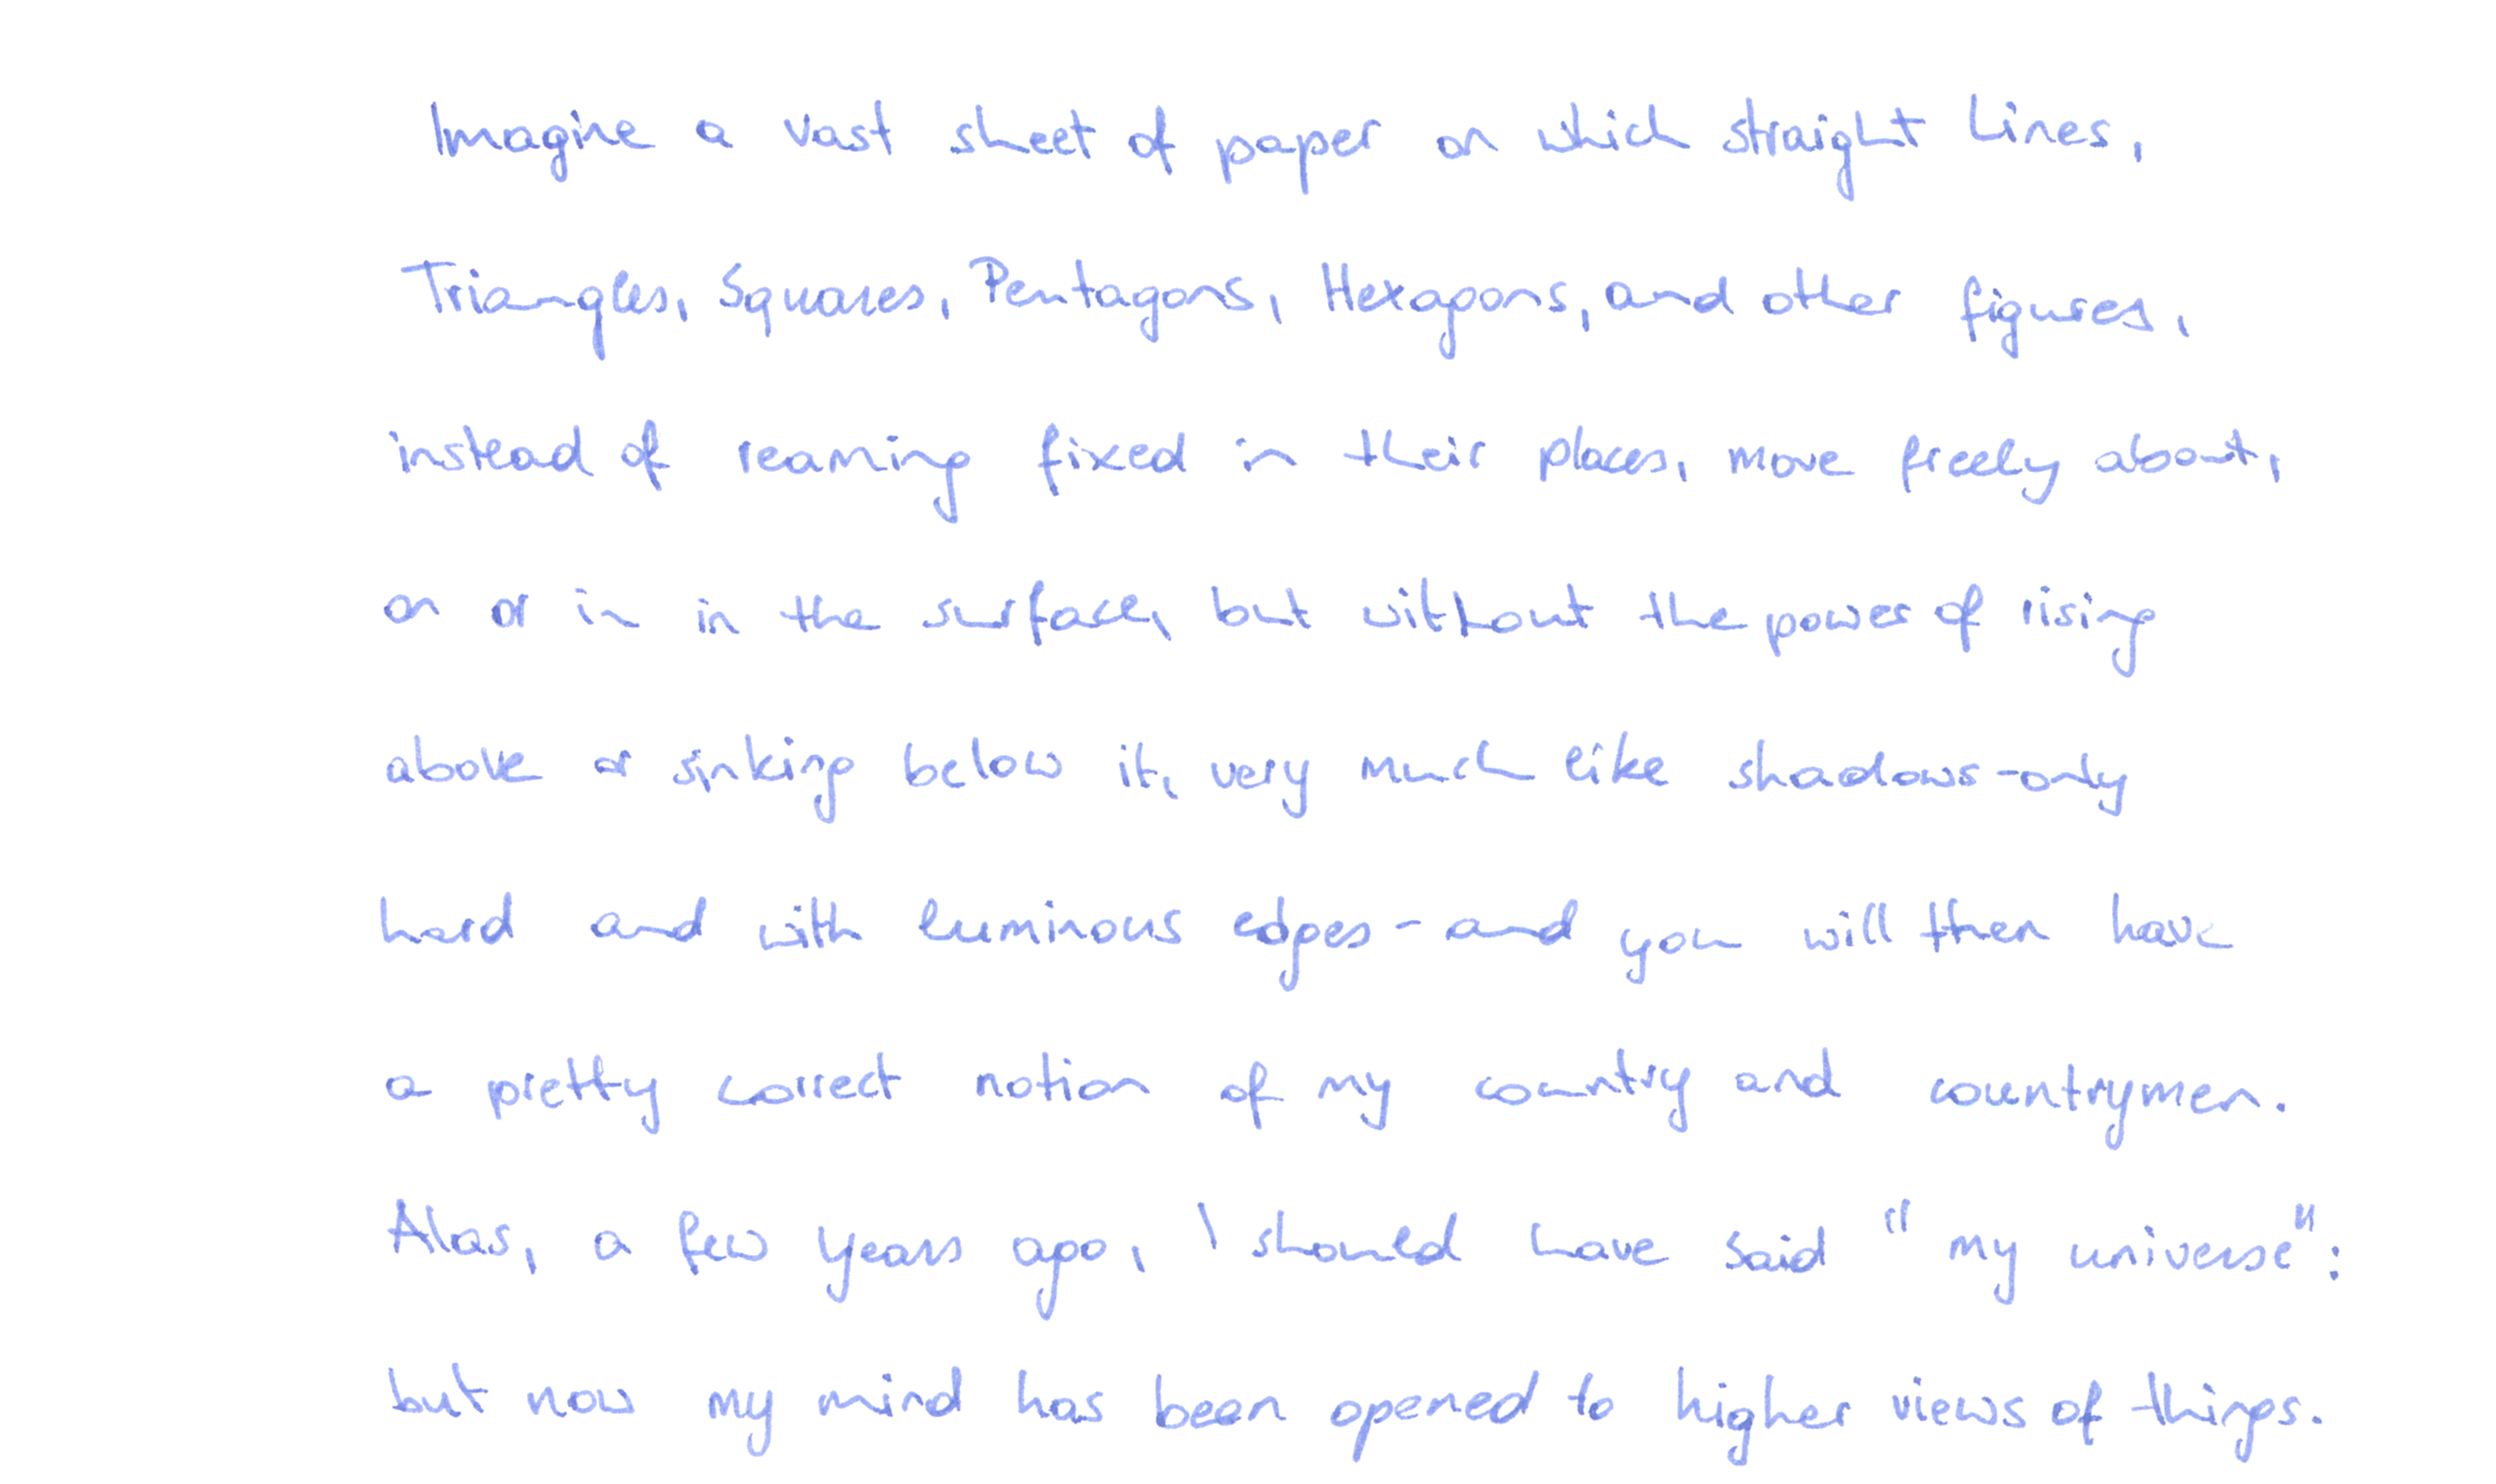 Imagine a vast sheet of paper on which straight Lines,
Triangles, Squares, Pentagons, Hexagons, and other figures,
instead of reaming fixed in their places, move freely about,
on or in in the surface, but without the power of rising
above or sinking below it, very much like shadows-only
hard and with luminous edges-and you will then have
a pretty correct notion of my country and countrymen.
Alas, a few years ago, I should have said "my universe":
but now my mind has been opened to higher views of things.